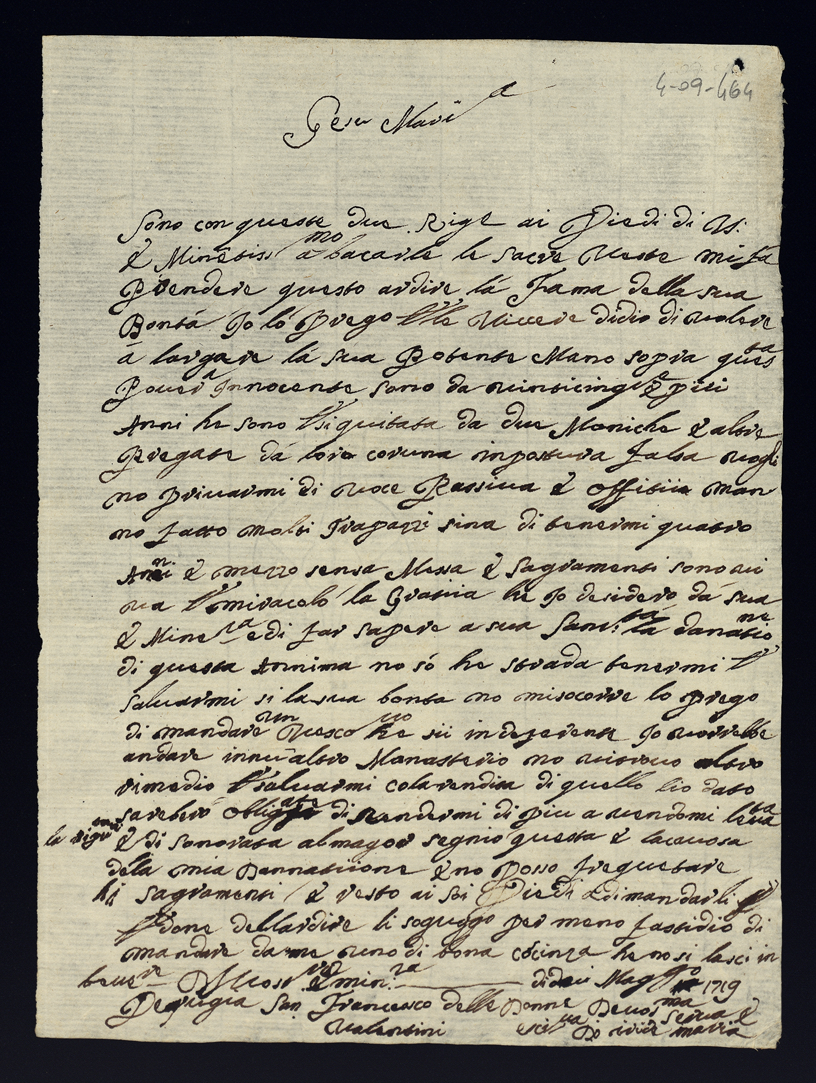 4-09-464
Gesu Maria
Sono con queste due Rige ai Piedi di Vs:
E Minētiss mo a bacarle le Sacre Veste mi fá
Prendere questo ardire lá Fama della sua
Bontá Jo ló Prego Viscere didio di volere
á largare lá sua Potente Mano sopra questa
Povera Jnnocente sono da vinticinque E piú
Anni he sono siguitata da due Moniche E altre
Pregate dá loro coruna inpostura falsa vogli
no privarmi di voce Passiva E offitii man
no fatto molti Trapazzi sina di tenermi quatro
Anni E mezzo sensa Messa E Sagramenti sono vi
va miracoló lá Gratiia he Jo desidero dá sua
E Mine za e di far sapere a sua Santitá lá danatione
di questa Annima no só he strada tenermi
saluarmi si la sua bonta no misocorre lo prego
di mandare un Vescovo he sii indeferente Jo vorrebbe
andare innūaltro Monasterio no ritrovo altro
rimedio saluarmi colarendita di quello lio dato
sarebró obligate di Rendermi di piu a vendomi levata
la
E di sonorata almagor segnio questa E lacausa
della mia Dannatiione E no posso frequetare
hi Sagramenti E resto ai soi Piedi a dimandarli
done dellardire li sogugo per meno fastidio di
mandare dame uno di bona cōcinza he no si lasci in
bevere
di dei Maggo 1719
Perugia San Francesco delle Donne Devos ma serva E
Valentini
maria